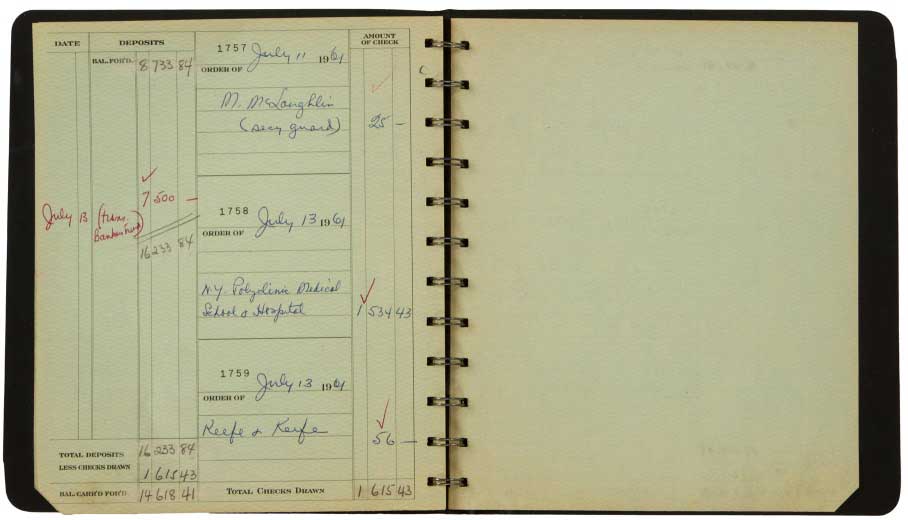 DATE DEPOSITS AMOUNT OF CHECK
BAL. FOR'D. 8 733 84
1757 July 11 1961
ORDER OF
M. McLoughlin
(secy guard) 25 —
July 13 (trans. 7 500 —
Bankers Trust)
16 233 84
1758 July 13 1961
ORDER OF
N.Y. Polyclinic Medical
School & Hospital 1 534 43
1759 July 13 1961
ORDER OF
Keefe & Keefe 56 —
TOTAL DEPOSITS 16 233 84
LESS CHECKS DRAWN 1 615 43
BAL. CARR'D FOR'D. 14 618 41
TOTAL CHECKS DRAWN 1 615 43